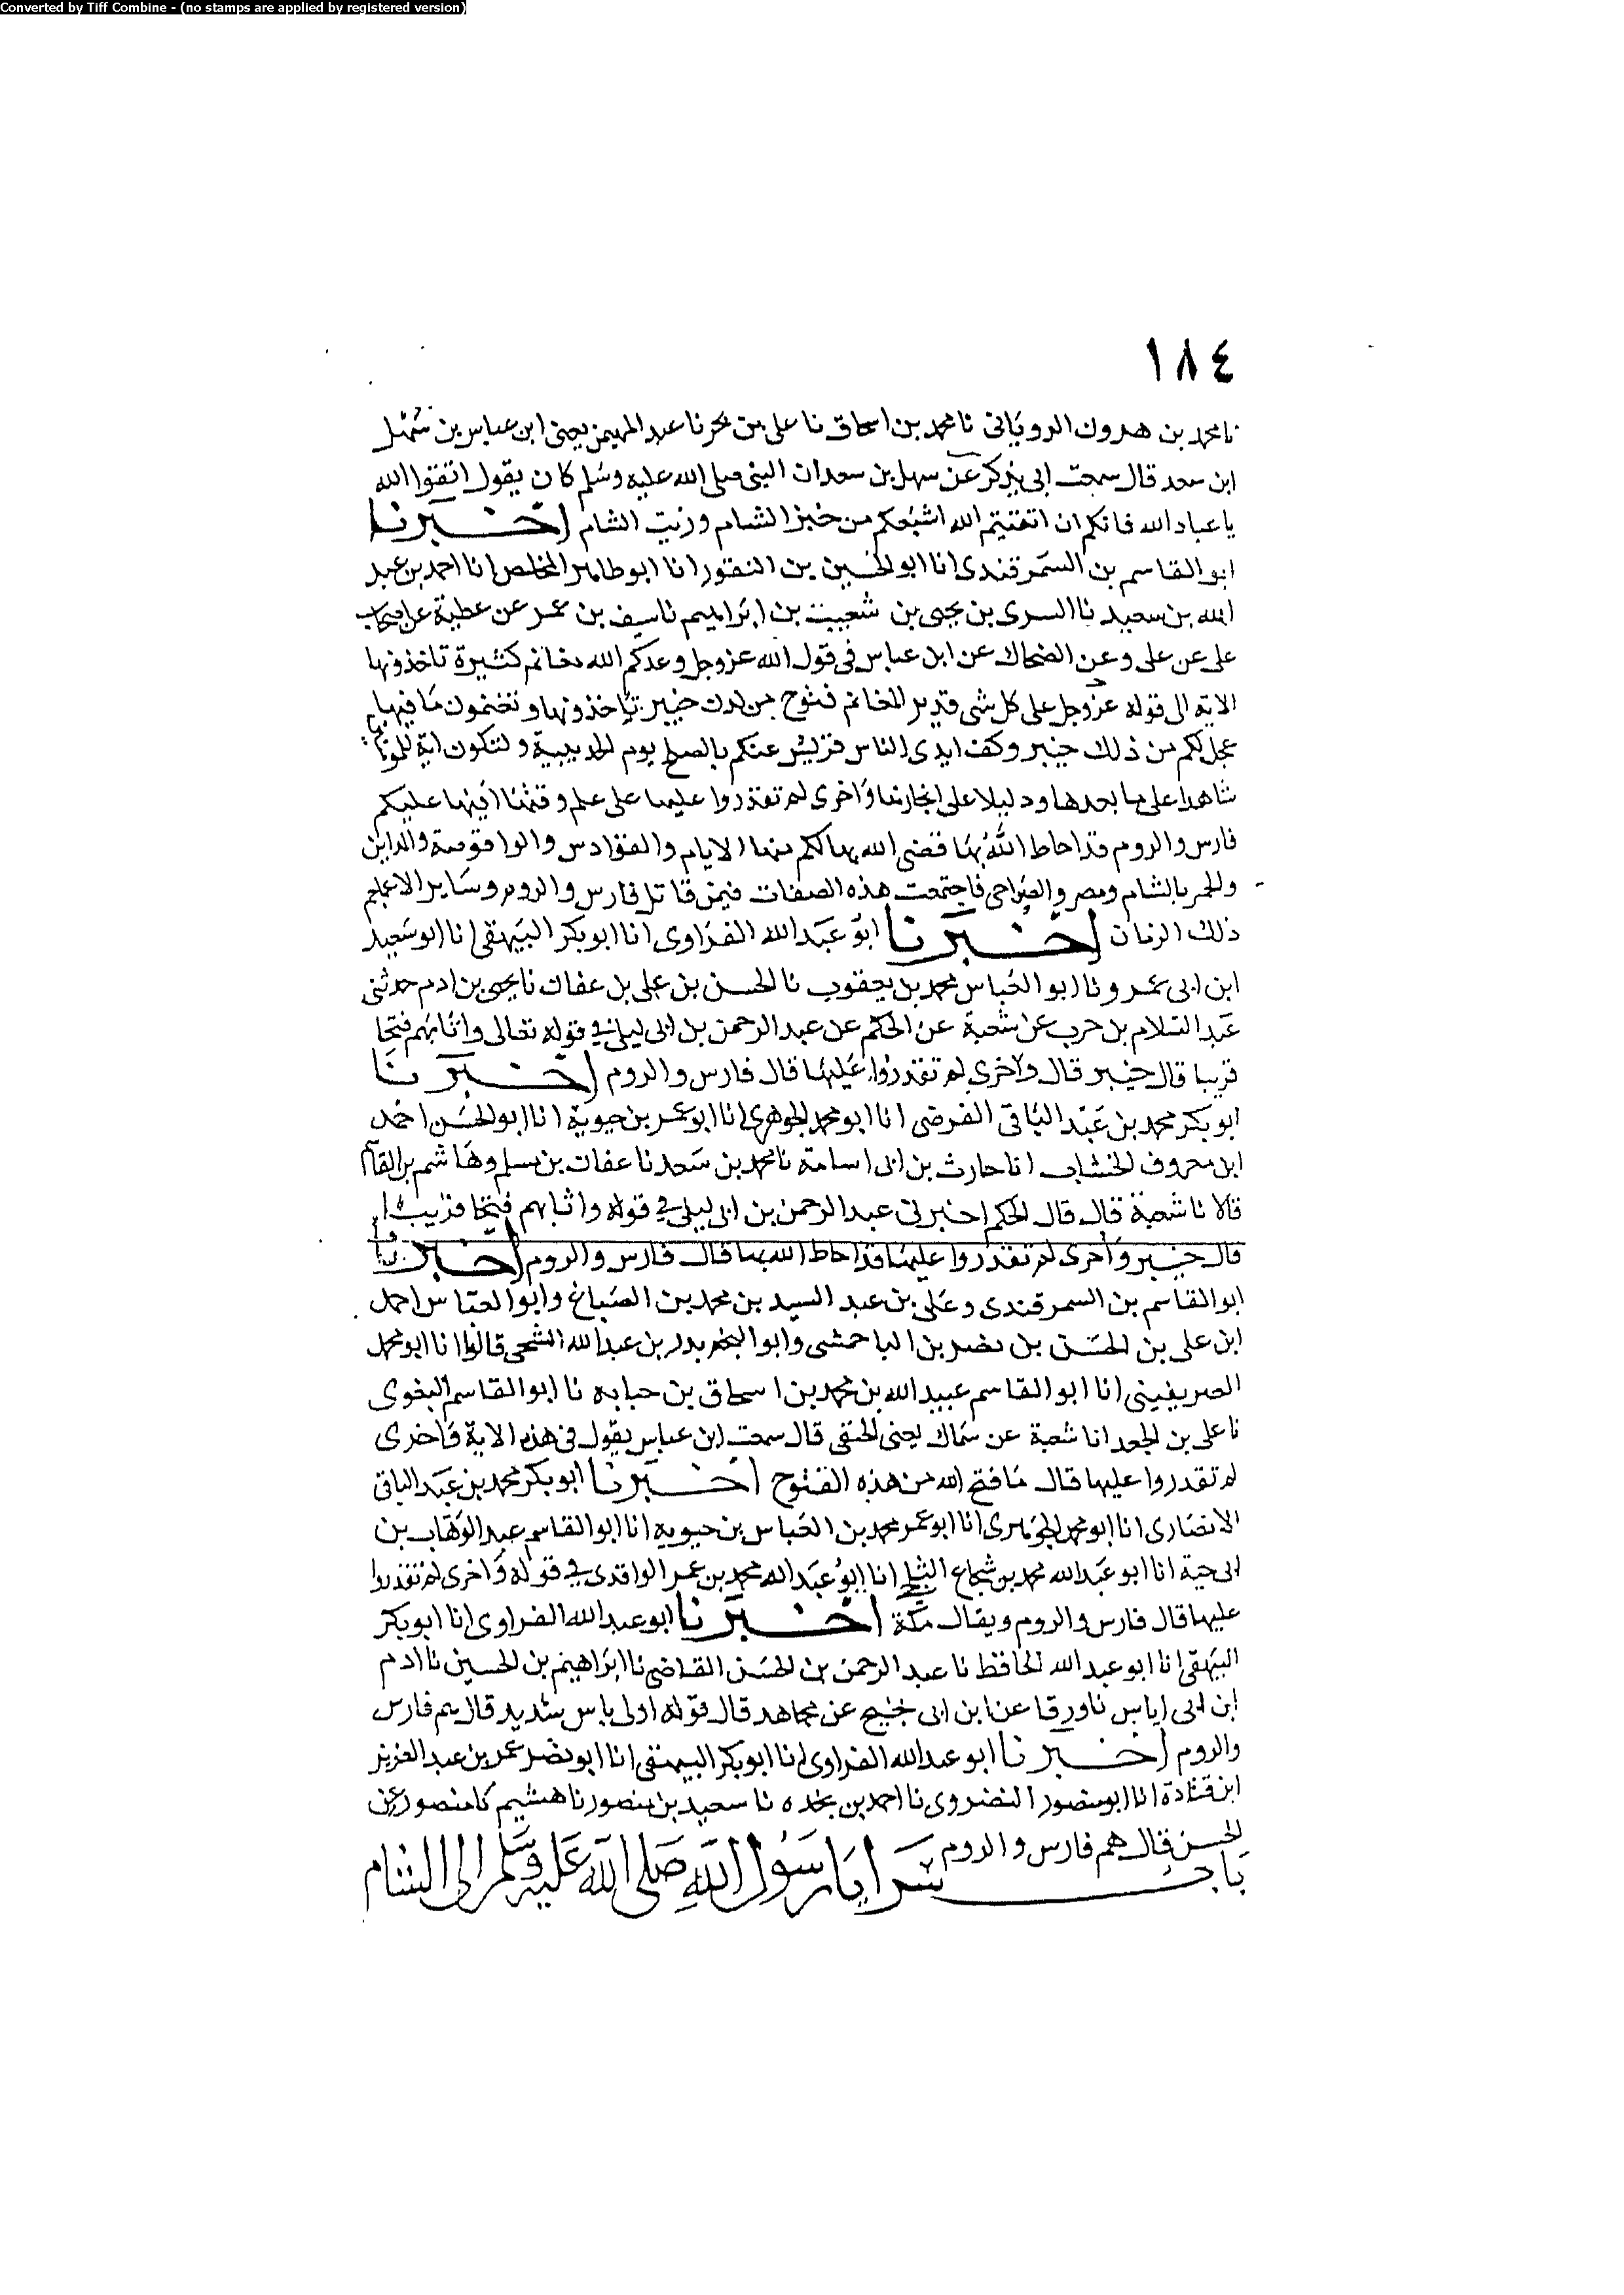 Converted by Tiff Combine - (no stamps are applied by registered version)
١٨٤
نا محمد بن هروك الروياني نا محمد بن اسحاق نا على بن بحر نا عبد المهيمن يعنى ابن عباس بن سهل
ابن سعد قال سمعت ابى يذكر عن سهل بن سعد ان النبى صلى الله عليه وسلم كان يقول اتقوا الله
يا عباد الله فانكم ان اتقيتم الله اشبعكم من خبز الشام وزيت الشام اخبرنا
ابو القاسم بن السمرقندى انا ابو الحسين بن النقور انا ابو طاهر المخلص انا احمد بن عبد
الله بن سعيد نا السرى بن يحيى بن شعيب بن ابراهيم نا سيف بن عمر عن عطية عن اصحاب
على عن على وعن الضحاك عن ابن عباس فى قول الله عز وجل وعدكم الله مغانم كثيرة تاخذونها
الاية الى قوله عز وجل على كل شى قدير المغانم فتوح من لدن خيبر تاخذونها وتغنمون ما فيها
عجل لكم من ذلك خيبر وكف ايدى الناس قريش عنكم بالصلح يوم الحديبية ولتكون اية للمومنين
شاهدا على ما بعدها ودليلا على انجازها واخرى لم تقدروا عليها على علم وقتها افيها عليكم
فارس والروم قد احاط الله بها قضى الله بها لكم منها الايام والقوادس والواقوصة والمداين
والحمر بالشام ومصر والضواحى فاجتمعت هذه الصفات فيمن قاتل فارس والروم وساير الاعاجم
ذلك الزمان اخبرنا ابو عبد الله الفراوى انا ابو بكر البيهقى انا ابو سعيد
ابن ابى عمرو نا ابو العباس محمد بن يعقوب نا الحسن بن على بن عفان نا يحيى بن ادم حدثنى
عبد السلام بن حرب عن شعبة عن الحكم عن عبد الرحمن بن ابى ليلى فى قوله تعالى واثابهم فتحا
قريبا قال خيبر قال واخرى لم تقدروا عليها قال فارس والروم اخبرنا
ابو بكر محمد بن عبد الباقى الفرضى انا ابو محمد الجوهرى انا ابو عمر بن حيوية انا ابو الحسن احمد
ابن معروف الخشاب انا حارث بن ابى اسامة نا محمد بن سعد نا عفان بن مسلم وهاشم بن القاسم
قالا نا شعبة قال قال الحكم اخبرنى عبد الرحمن بن ابى ليلى فى قوله واثابهم فتحا قريبا
قال خيبر واخرى لم تقدروا عليها قد احاط الله بها قال فارس والروم اخبرنا
ابو القاسم بن السمرقندى وعلى بن عبد السيد بن محمد بن الصباغ وابو العباس احمد
ابن على بن الحسن بن نصر بن الباحمشى وابو النجم بدر بن عبد الله الشيحى قالوا انا ابو محمد
الصريفينى انا ابو القاسم عبيد الله بن محمد بن اسحاق بن حبابه نا ابو القاسم البغوى
نا على بن الجعد انا شعبة عن سماك يعنى الحنفى قال سمعت ابن عباس يقول فى هذه الاية واخرى
لم تقدروا عليها قال ما فتح الله من هذه الفتوح اخبرنا ابو بكر محمد بن عبد الباقى
الانصارى انا ابو محمد الجوهرى انا ابو عمر محمد بن العباس بن حيويه انا ابو القاسم عبد الوهاب بن
ابى حية انا ابو عبد الله محمد بن شجاع الثلجى انا ابو عبد الله محمد بن عمر الواقدى فى قوله واخرى لم تقدروا
عليها قال فارس والروم ويقال مكة اخبرنا ابو عبد الله الفراوى انا ابو بكر
البيهقى انا ابو عبد الله الحافظ نا عبد الرحمن بن الحسن القاضى نا ابراهيم بن الحسين نا ادم
ابن ابى اياس نا ورقا عن ابن ابى نجيح عن مجاهد قال قوله اولى باس شديد قال هم فارس
والروم اخبرنا ابو عبد الله الفراوى انا ابو بكر البيهقى انا ابو نصر عمر بن عبد العزيز
ابن قتادة انا ابو منصور النضروى نا احمد بن نجده نا سعيد بن منصور نا هشيم نا منصور عن
الحسن قال هم فارس والروم
باب سرايا رسول الله صلى الله عليه وسلم الى الشام